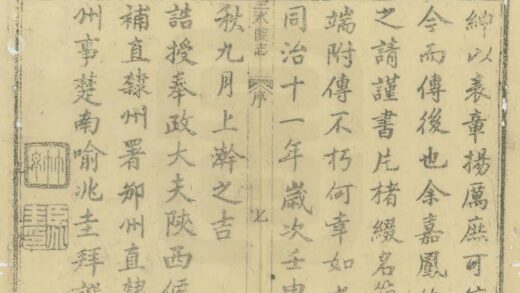 紳以表章揚厲庶可
今而傳後也余嘉
之請謹書片楮綴名
端附傳不朽何幸如
同治十一年歲次壬申
水縣志
序
秋九月上澣之吉
誥授奉政大夫陝西
補直隸州署邠州直隸
州事楚南喻兆圭拜